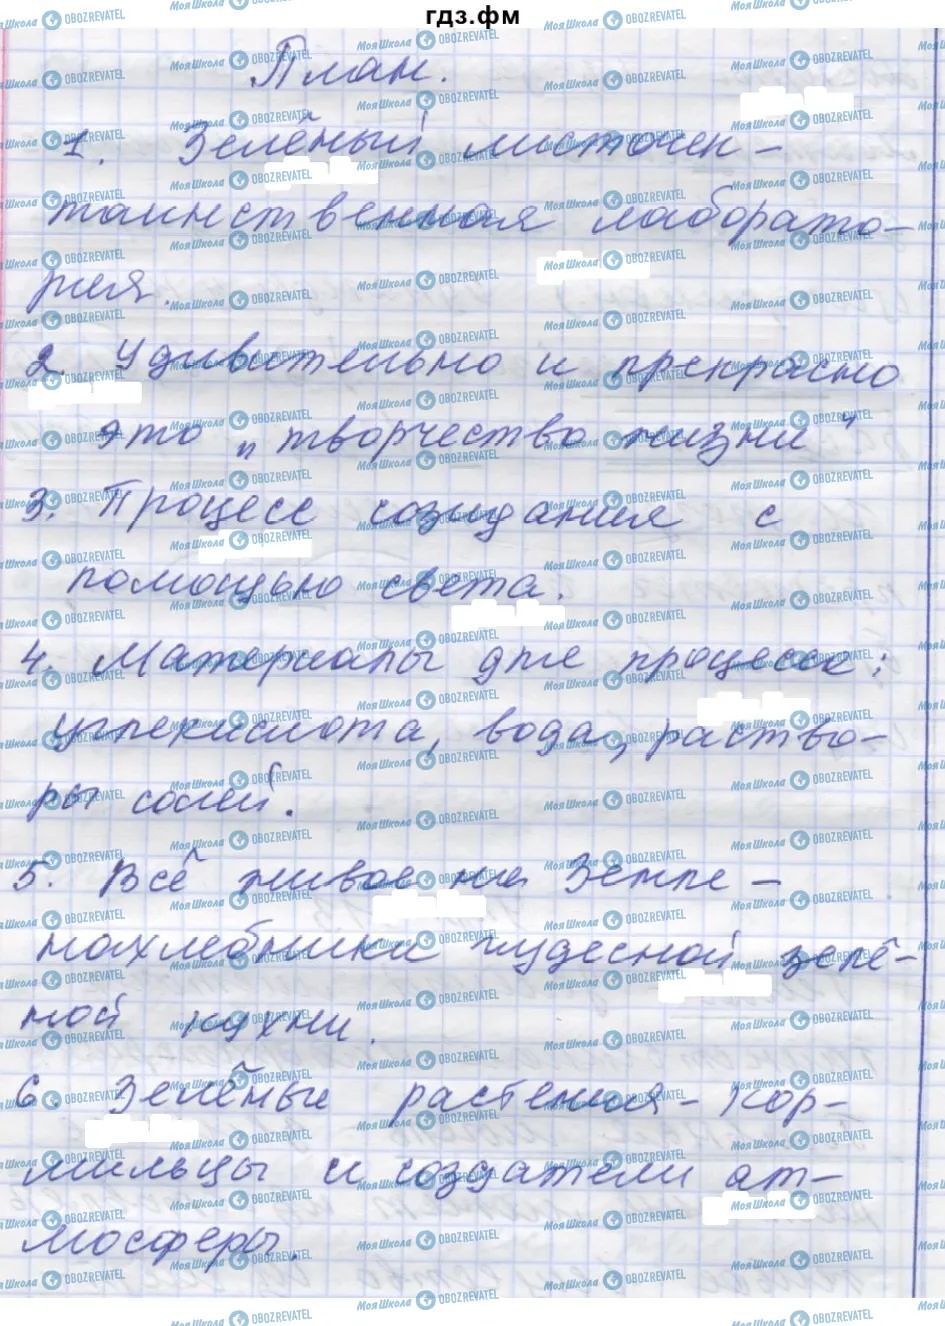 гдз.фм
План.
1. Зелёный листочек -
таинственная лаборато-
рия.
2. Удивительно и прекрасно
это „творчество жизни"
3. Процесс созидания с
помощью света.
4. Материалы для процесса:
углекислота, вода, раство-
ры солей.
5. Всё живое на Земле -
нахлебники чудесной зелё-
ной кухни.
6 Зелёные растения - кор-
мильцы и создатели ат-
мосферы.